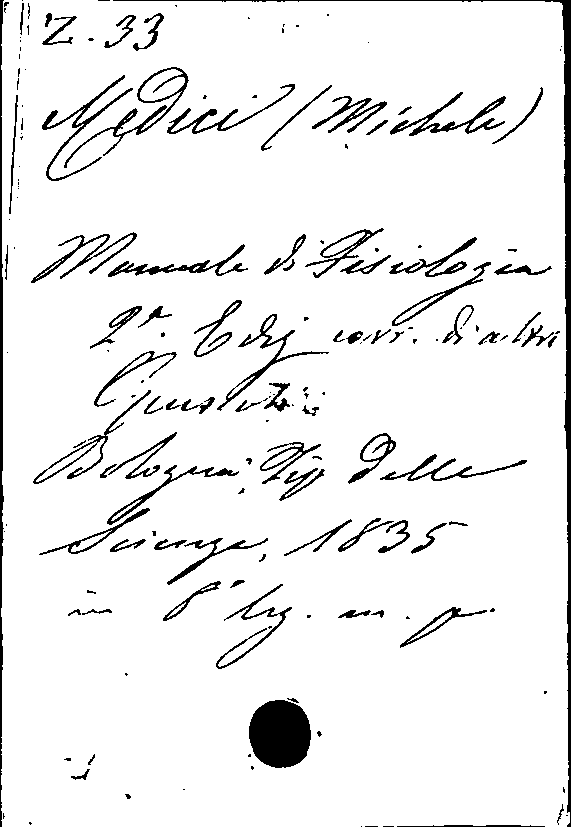 Z. 33
Medici (Michele)
Manuale di Fisiologia
2ª. Ediz corr. di altri
Opuscoli
Bologna, Tip delle
Scienze, 1835
in 8° leg. m. p.